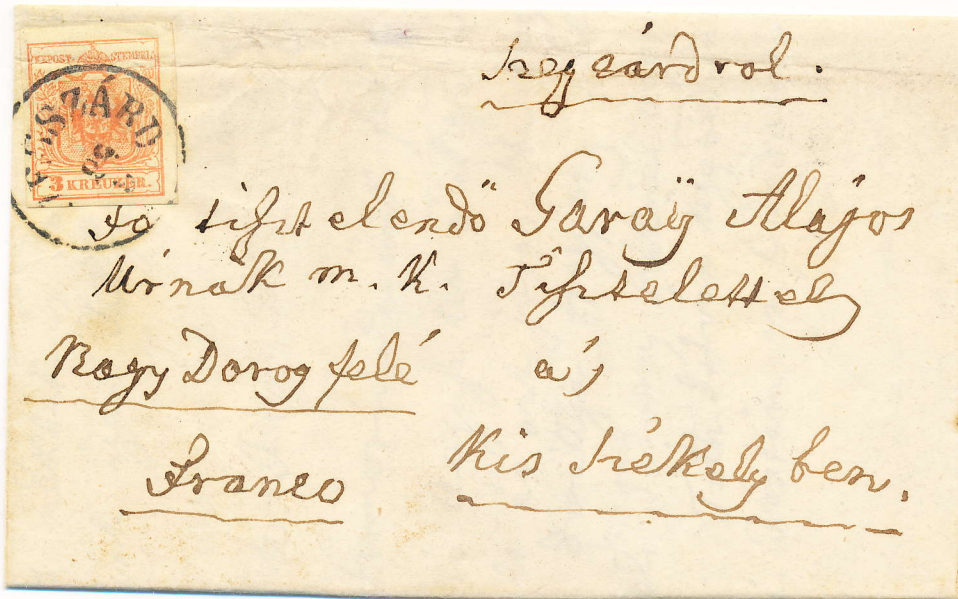 KK POST-STEMPEL
SZEGSZÁRD
3 KREUZER.
Szegzárdrol.
Fő tisztelendő Garaÿ Alajos
Urnak m. K. Tisztelettel
Nagy Dorog felé
Kis Székelyben.
Franco